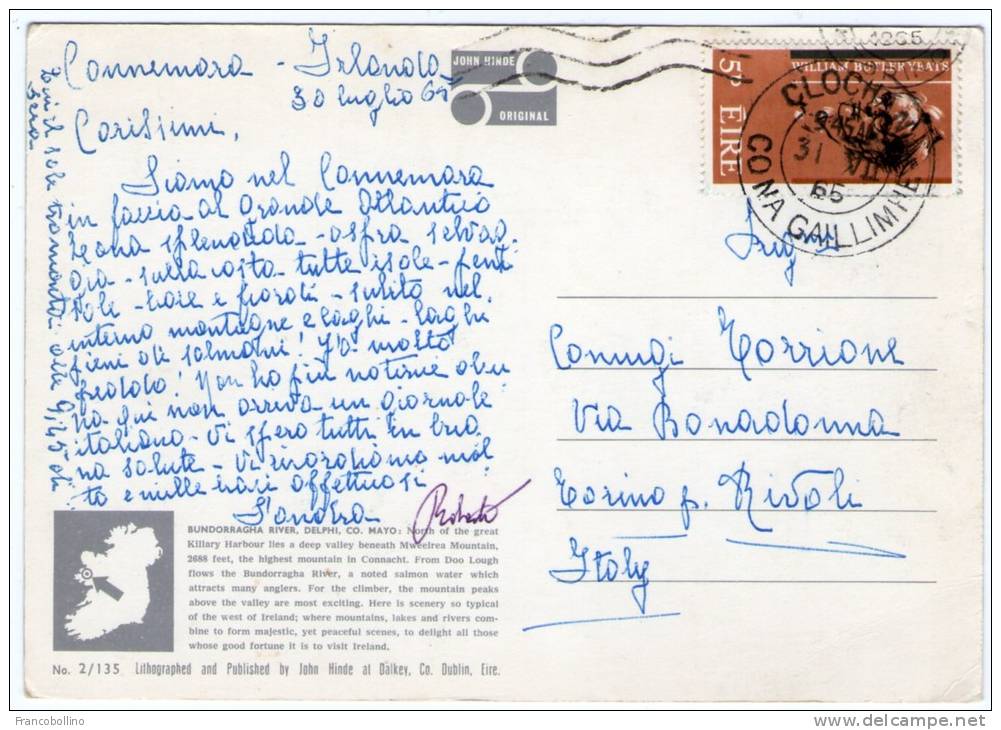 Connemara - Irlanda
30 luglio 65
Carissimi,
Siamo nel Connemara
in faccia al grande Atlantico
zona splendida - aspra selvag
gia - sulla costa tutte isole - peni
sole - baie e fiordi - subito nel
interno montagne e laghi - laghi
pieni di salmoni! Fa molto
freddo! Non ho più notizie
qui non arriva un giornale
italiano - Vi spero tutti in buo
na salute - Vi ricordiamo mol
to e mille baci affettuosi
Sandra
Roberto
Qui il sole tramonta alle 9,45 di
sera
JOHN HINDE
ORIGINAL
1965
WILLIAM BUTLER YEATS
5p ÉIRE
CLOCH NA
31 VII
65
CO NA GAILLIMHE
Coniugi Torrione
Via Bonadonna
Torino p. Rivoli
Italy
BUNDORRAGHA RIVER, DELPHI, CO. MAYO: North of the great
Killary Harbour lies a deep valley beneath Mweelrea Mountain,
2688 feet, the highest mountain in Connacht. From Doo Lough
flows the Bundorragha River, a noted salmon water which
attracts many anglers. For the climber, the mountain peaks
above the valley are most exciting. Here is scenery so typical
of the west of Ireland; where mountains, lakes and rivers com-
bine to form majestic, yet peaceful scenes, to delight all those
whose good fortune it is to visit Ireland.
No. 2/135 Lithographed and Published by John Hinde at Dalkey, Co. Dublin, Eire.
Francobollino
delcampe.net